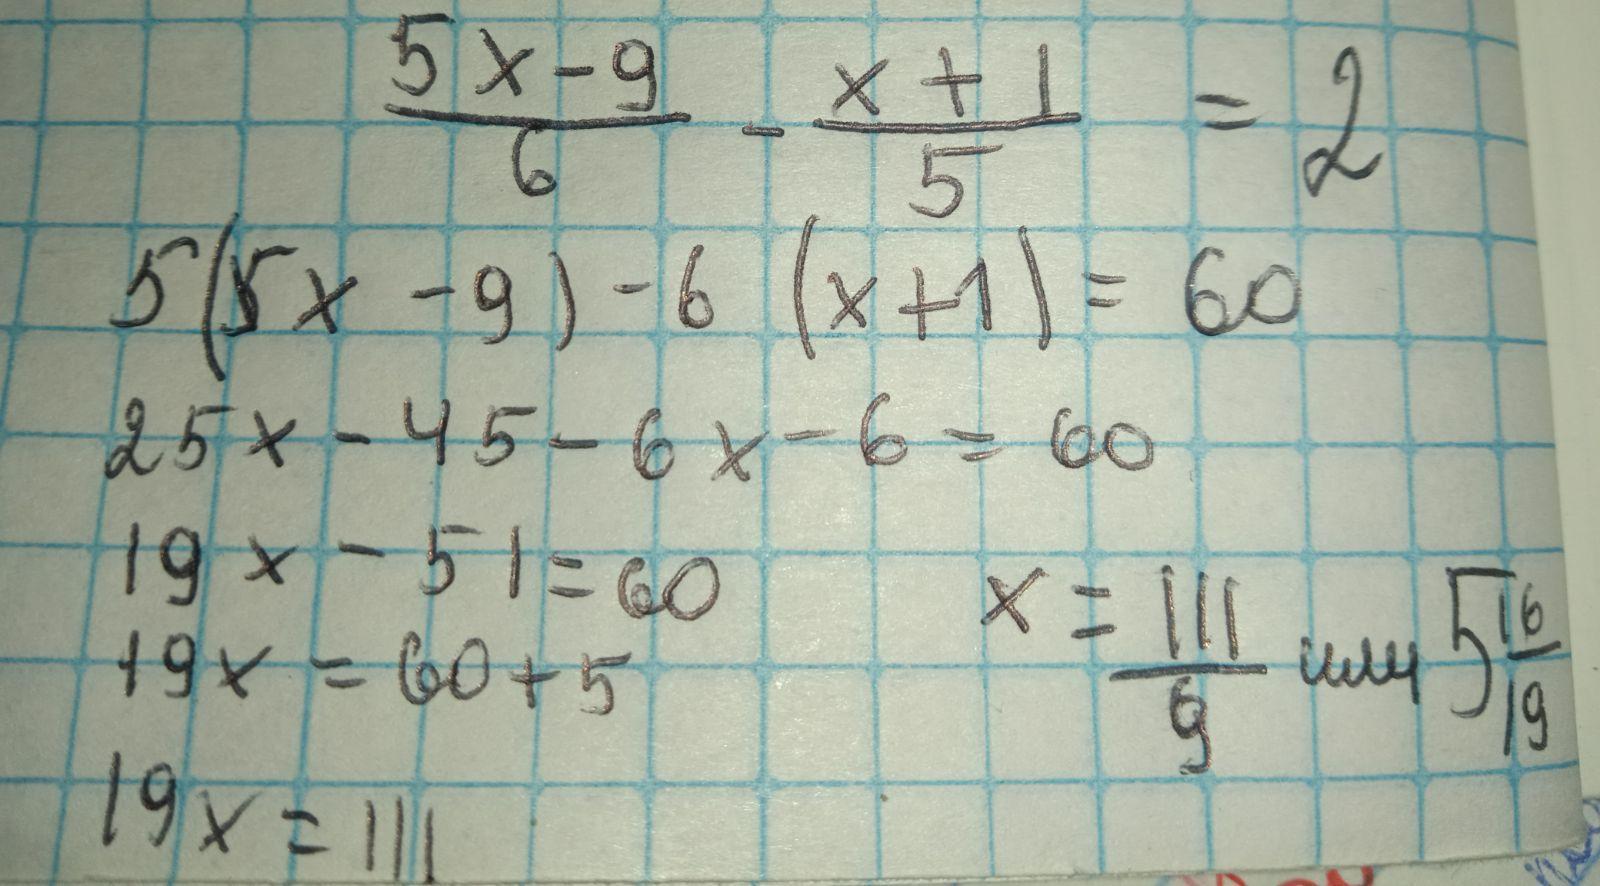 5x-9/6 - x+1/5 = 2
5(5x-9)-6(x+1)=60
25x-45-6x-6=60
19x-51=60
19x=60+5
19x=111
x=111/9 или 5 16/19